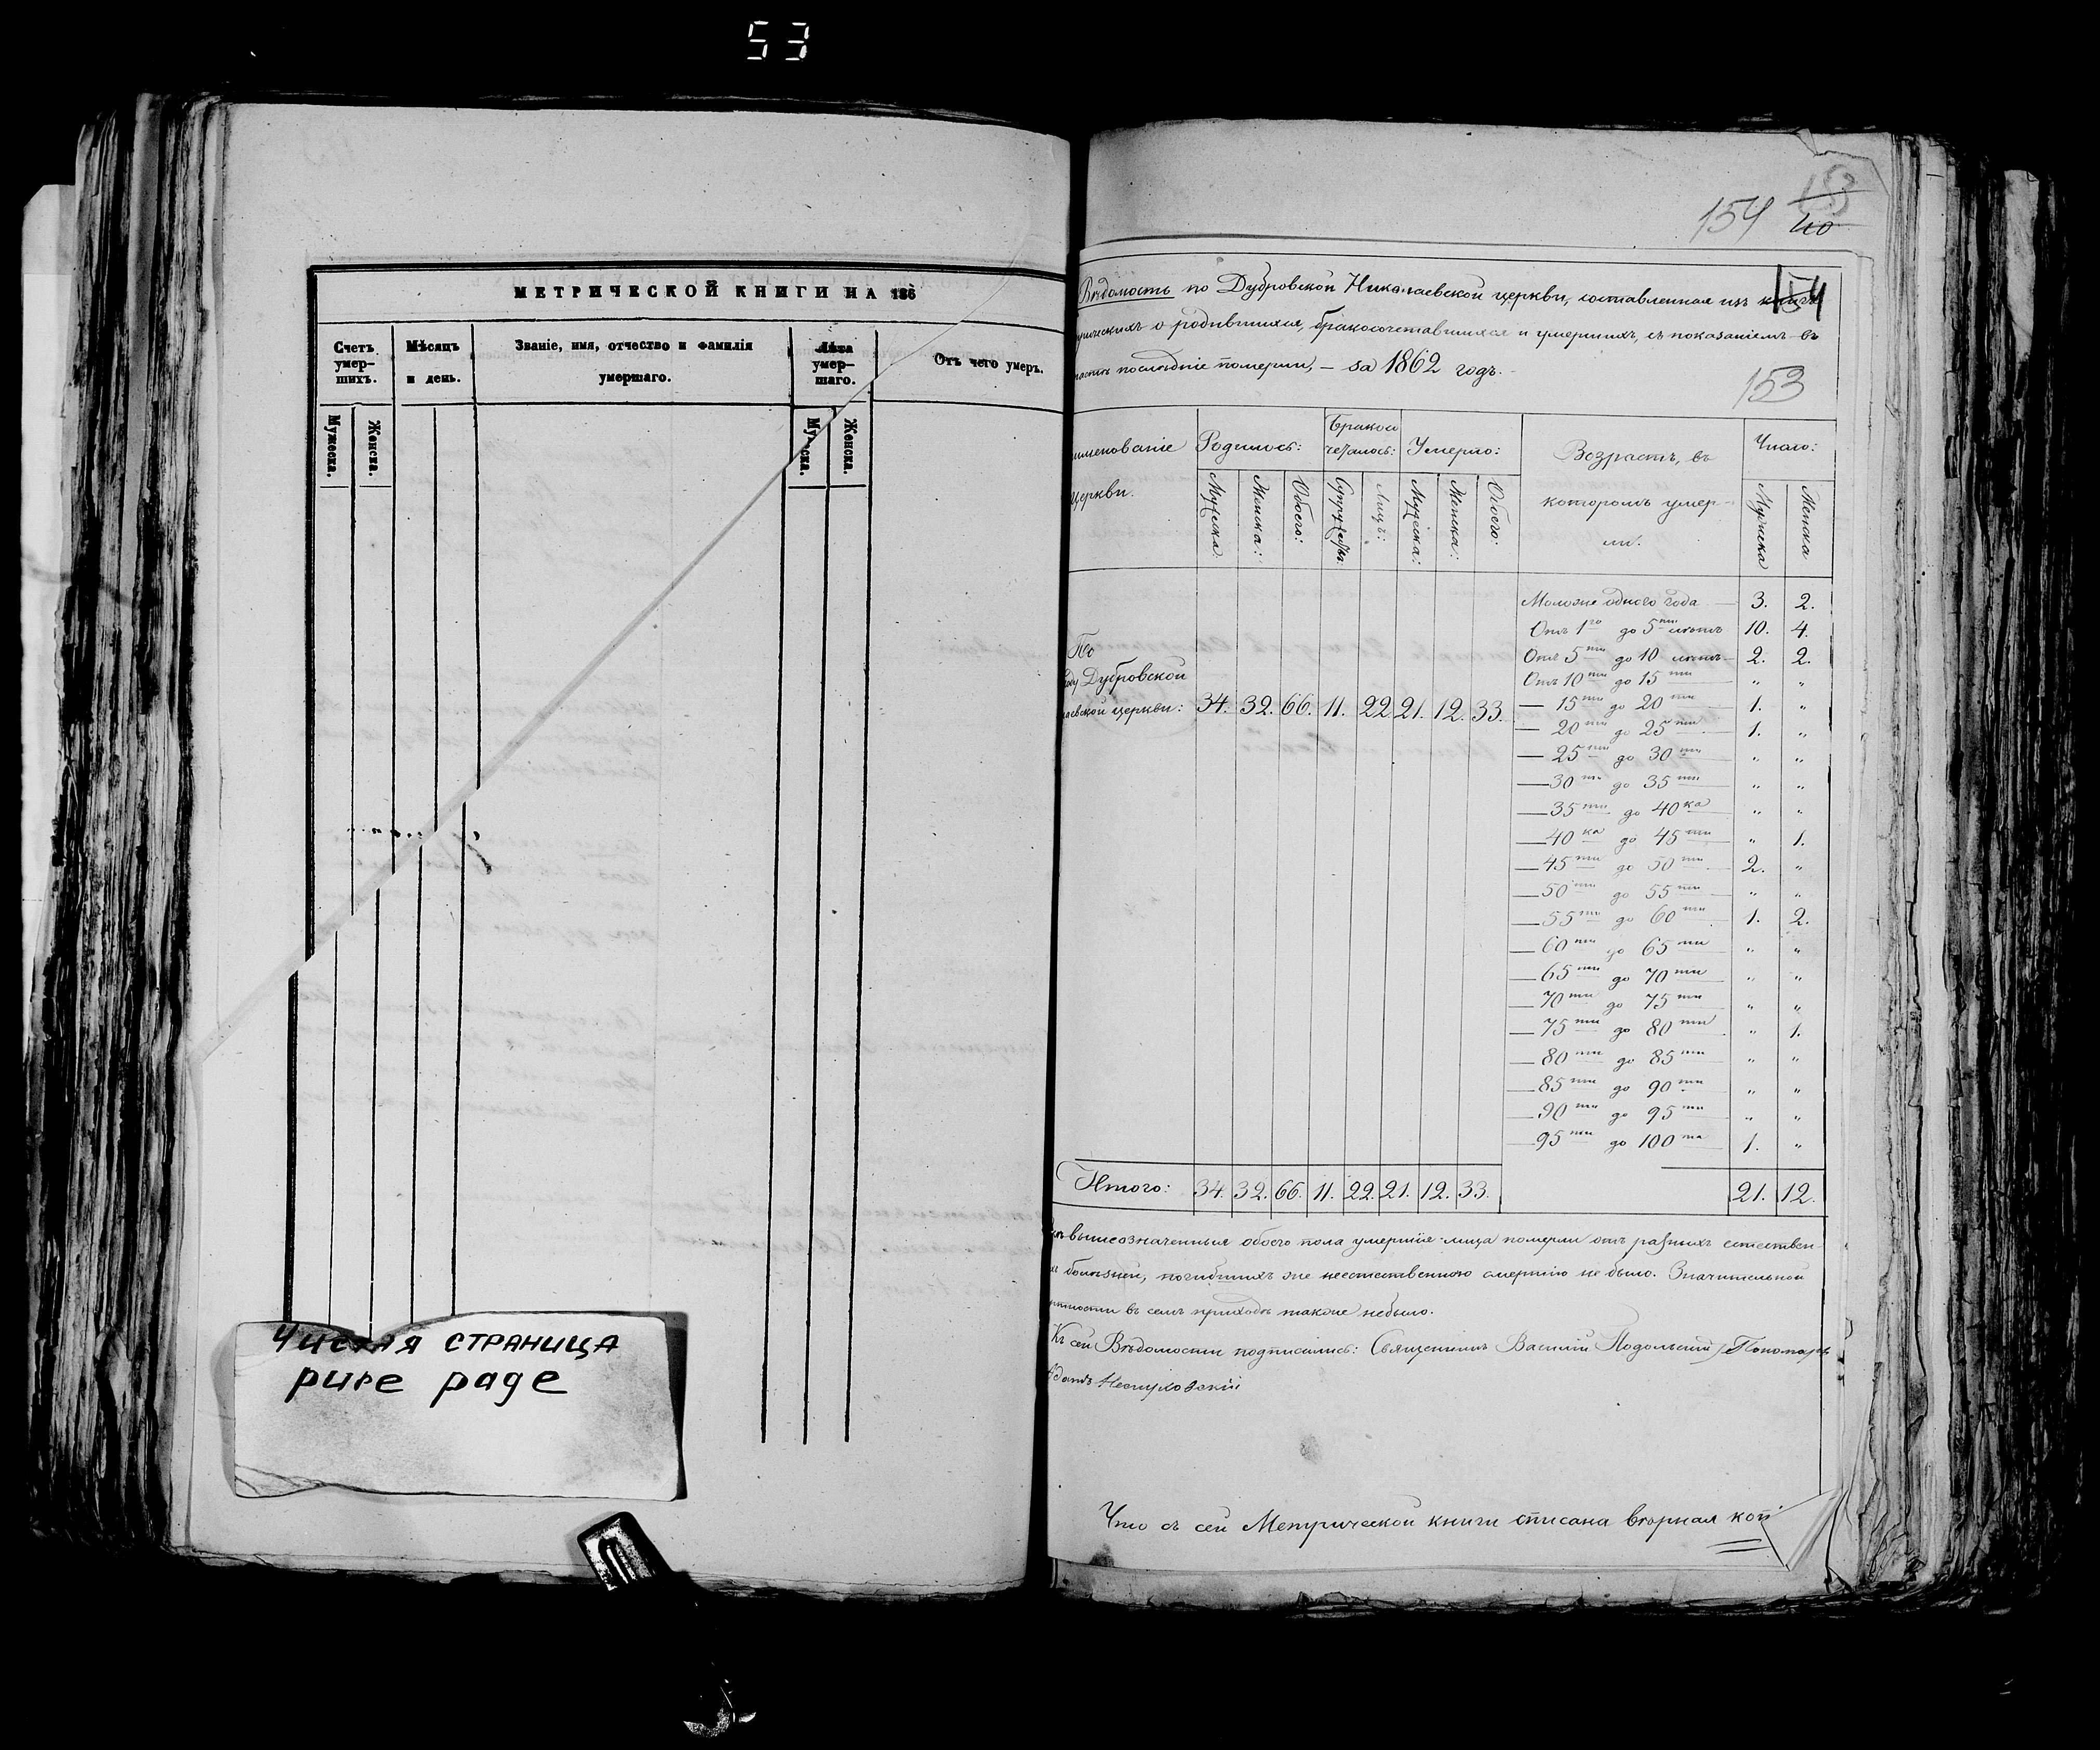 53
МЕТРИЧЕСКОЙ КНИГИ НА 186
Счетъ умер-шихъ.
Мѣсяцъ и день.
Званіе, имя, отчество и фамилія умершаго.
Лѣта умер-шаго.
Отъ чего умеръ.
Мужеска.
Женска.
Женска.
Чистая страница
pure page
154
40
154
Вѣдомость по Дубровской Николаевской церкви, составленная изъ книгъ
рическихъ о родившихся, бракосочетавшихся и умершихъ, съ показаніемъ въ
послѣдніе померли, — за 1862 годъ.
153
именованіе церкви.
Родилось:
Бракосо четалось:
Умерло:
Возрастъ, въ которомъ умер-ли.
Число:
Мужеска:
Женска:
Обоего:
Супружествъ
Лицъ:
Мужеска:
Женска:
Обоего:
Мужеска
Женска
По
ходу Дубровской
лаевской церкви: 34. 32. 66. 11. 22. 21. 12. 33.
Моложе одного года — 3. 2.
Отъ 1го до 5ти лѣтъ 10. 4.
Отъ 5ти до 10 лѣтъ 2. 2.
Отъ 10ти до 15ти " "
— 15ти до 20ти 1. "
— 20ти до 25ти 1. "
— 25ти до 30ти " "
— 30ти до 35ти " "
— 35ти до 40ка " "
— 40ка до 45ти " 1.
— 45ти до 50ти 2. "
— 50ти до 55ти " "
— 55ти до 60ти 1. 2.
— 60ти до 65ти " "
— 65ти до 70ти " "
— 70ти до 75ти " "
— 75ти до 80ти " 1.
— 80ти до 85ти " "
— 85ти до 90ти " "
— 90ти до 95ти " "
— 95ти до 100та 1. "
Итого: 34. 32. 66. 11. 22. 21. 12. 33. 21. 12.
вышеозначенныя обоего пола умершія лица померли отъ разныхъ естествен-
хъ болѣзней, погибшихъ же неестественною смертію не было. Значительной
ртности въ семъ приходѣ также небыло.
Къ сей Вѣдомости подписались: Священникъ Василій Подольскій, Пономарь
Что съ сей Метрической книги списана вѣрная копі